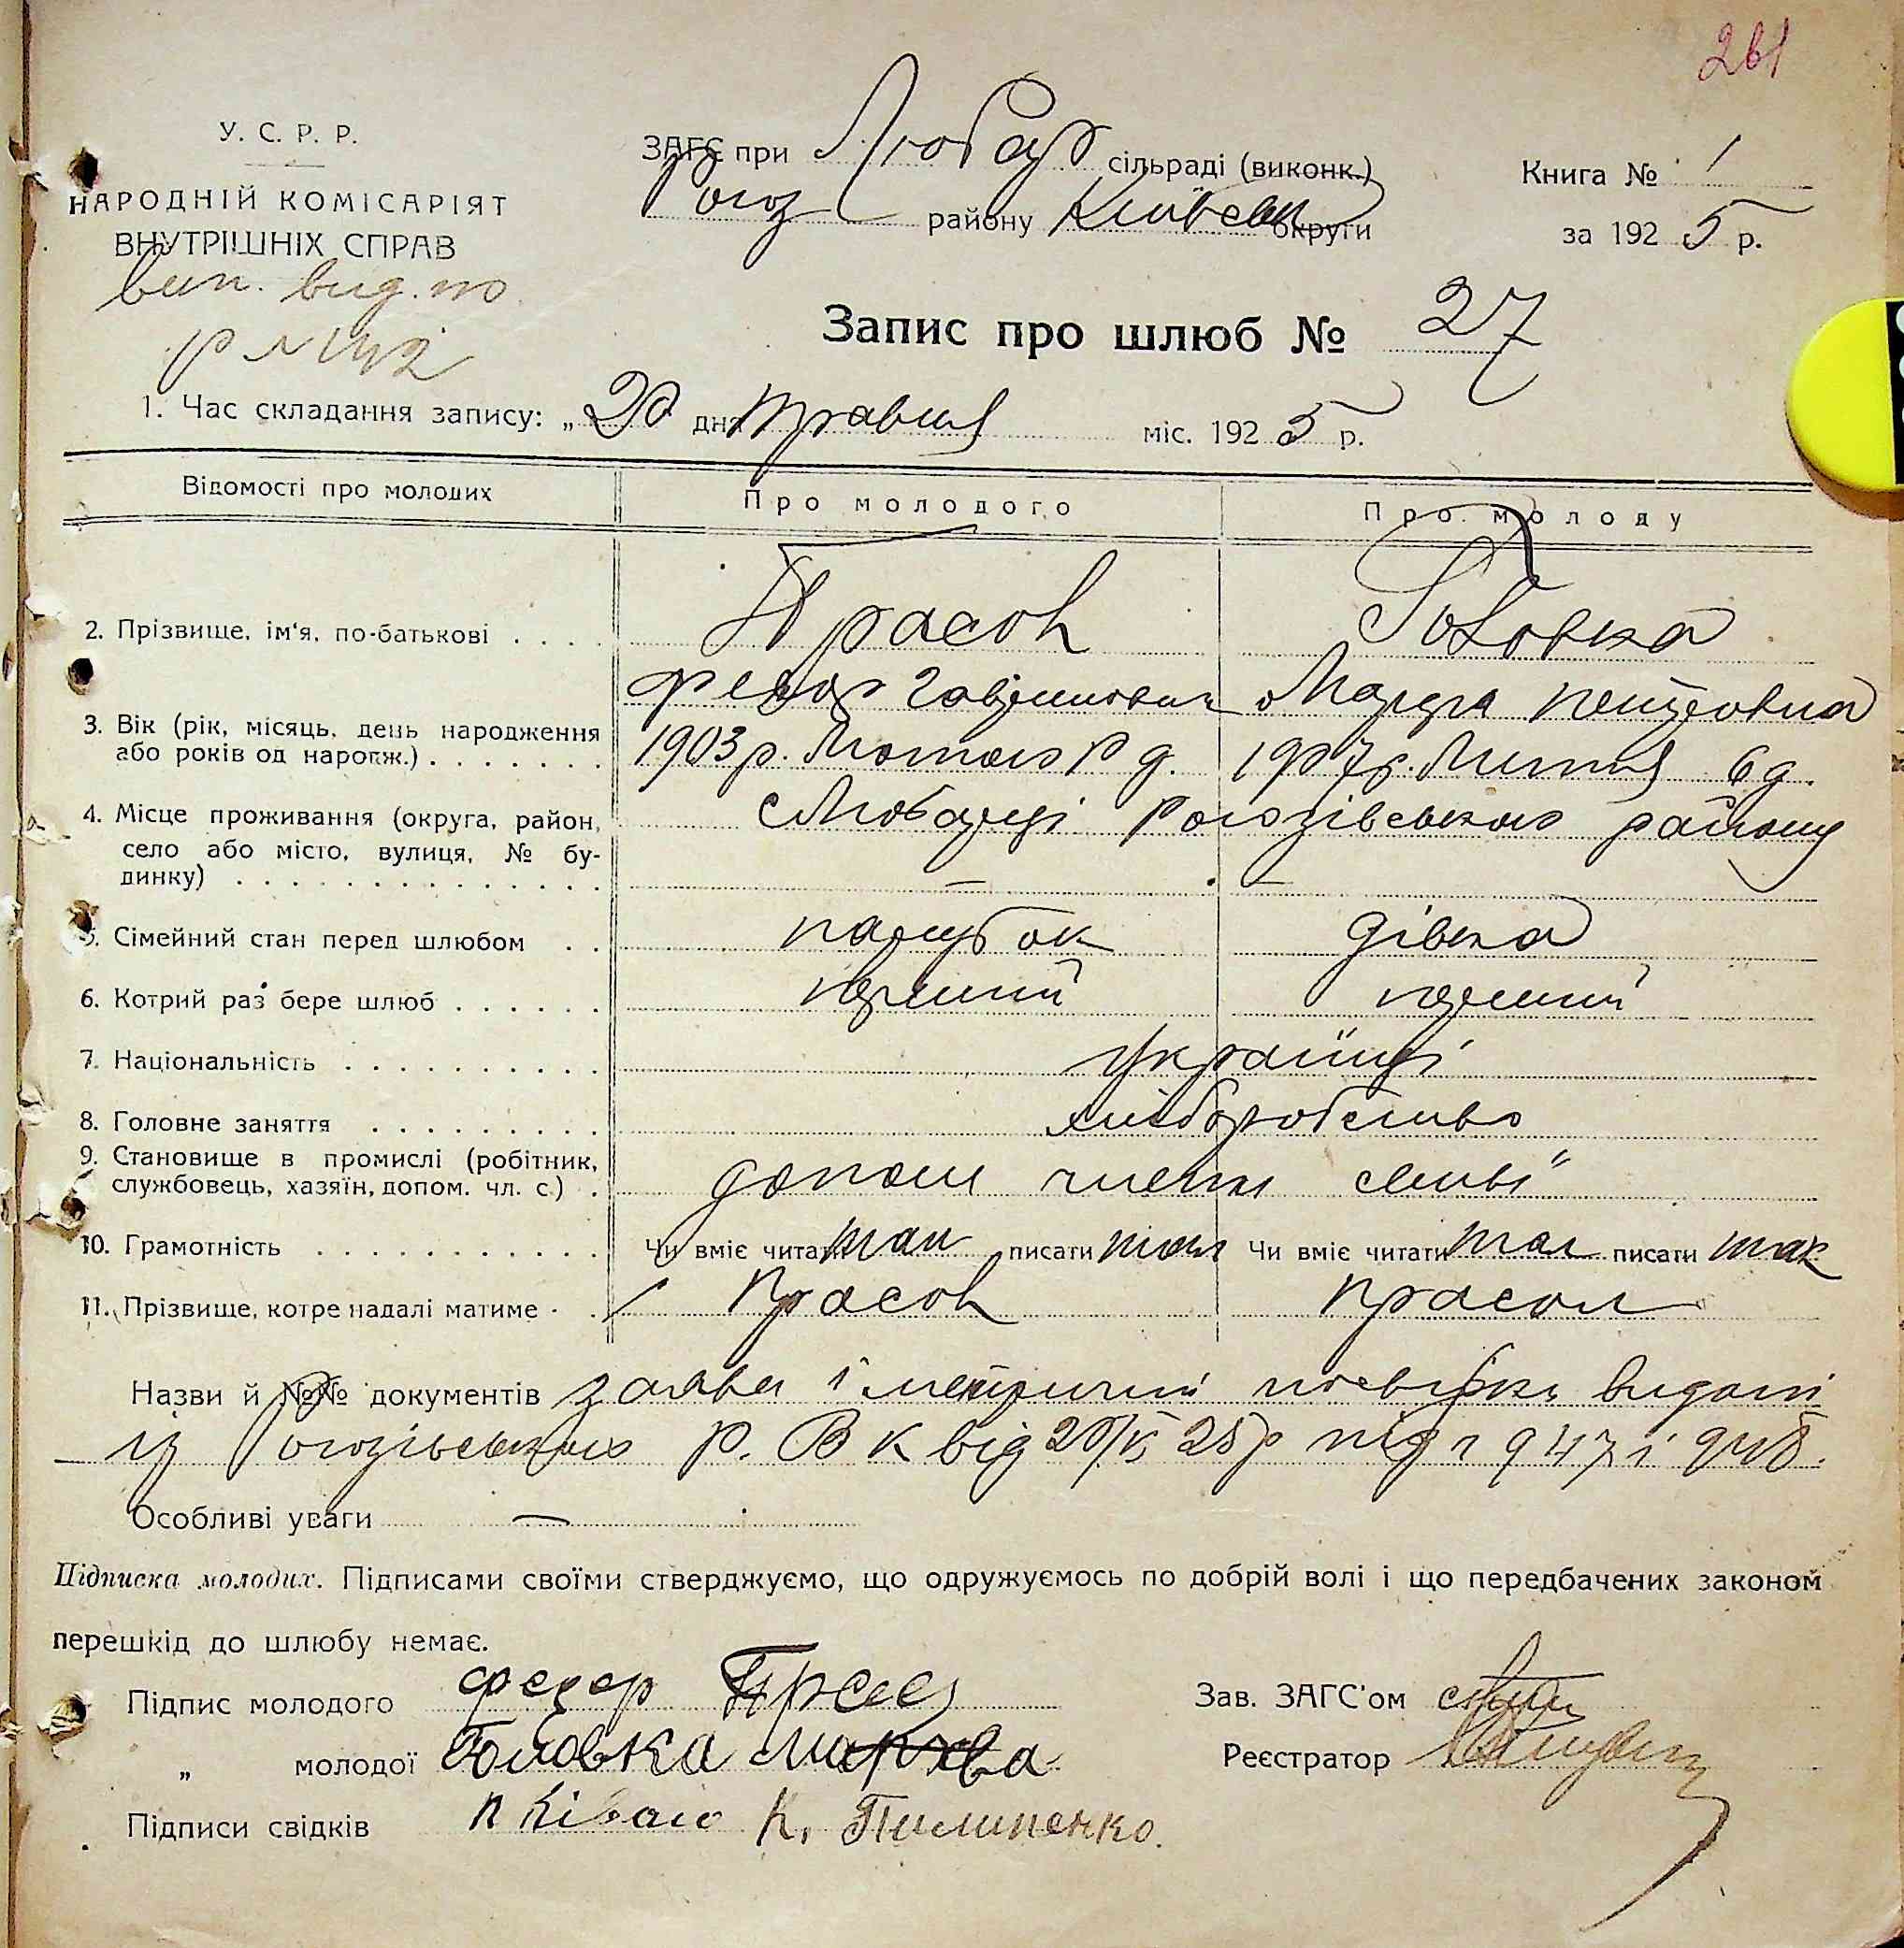 261
У. С. Р. Р.
НАРОДНІЙ КОМІСАРІЯТ
ВНУТРІШНІХ СПРАВ
вип. вид. по
р №
ЗАГС при Любар сільраді (виконк.)
Рогоз району Київськ округи
Книга № 1
за 192 5 р.
Запис про шлюб № 27
1. Час складання запису: „ 20 дня травня міс. 192 5 р.
Відомості про молодих Про молодого Про молоду
2. Прізвище, ім'я, по-батькові . . . . Прасол Головка
Федор Марфа
3. Вік (рік, місяць, день народження
або років од народж.) . . . . . . . 1903 р. Лютого д. 1907 р. Липня 6 д.
4. Місце проживання (округа, район, с Любарці Рогозівського району
село або місто, вулиця, № бу-
динку) . . . . . . . . . . . . . . . — —
5. Сімейний стан перед шлюбом . . парубок дівка
6. Котрий раз бере шлюб . . . . . . перший перший
7. Національність . . . . . . . . . . . українці
8. Головне заняття . . . . . . . . . хліборобство
9. Становище в промислі (робітник,
службовець, хазяїн, допом. чл. с.) . допом члени семьї
10. Грамотність . . . . . . . . . . . Чи вміє читати так писати так Чи вміє читати так писати так
11. Прізвище, котре надалі матиме . . Прасол Прасол
Назви й №№ документів заява і метричні посвідки видані
із Рогозівського Р. В К від 20/V 25 р під № 947 і 948.
Особливі уваги —
Підписка молодих. Підписами своїми стверджуємо, що одружуємось по добрій волі і що передбачених законом
перешкід до шлюбу немає.
Підпис молодого федер
„ молодої Головка Мархва
Підписи свідків К. Пилипенко.
Зав. ЗАГС'ом
Реєстратор